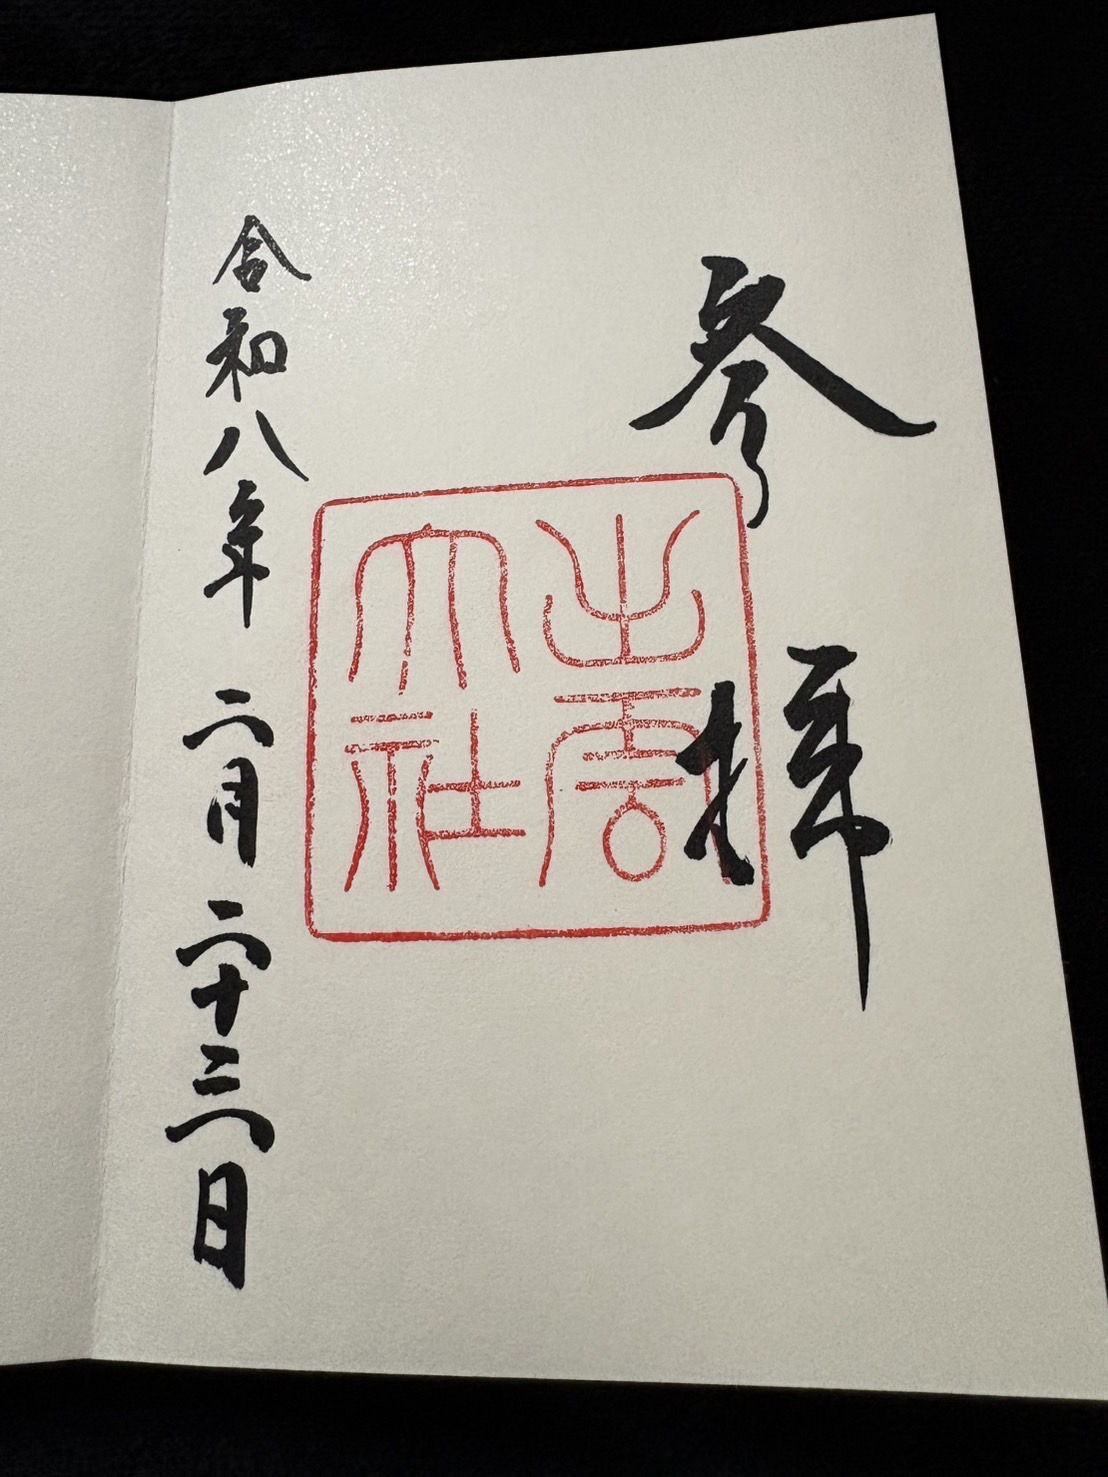 参拝
出雲大社
令和八年二月二十三日